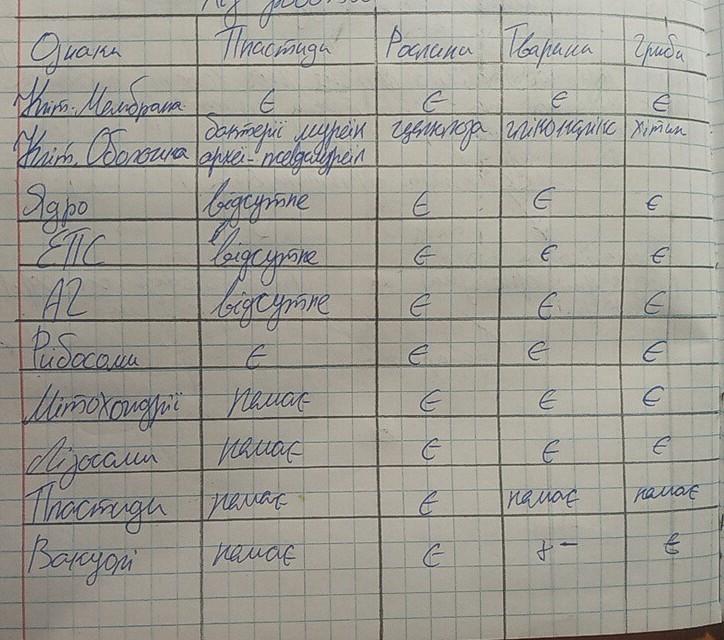 Ознаки Пластиди Рослини Тварини Гриби
Кліт. Мембрана є є є є
Кліт. Оболонка бактерії муреїн целюлоза глікокалікс хітин
археї - псевдомуреїн
Ядро відсутнє є є є
ЕПС відсутнє є є є
АГ відсутнє є є є
Рибосоми є є є є
Мітохондрії немає є є є
Лізосоми немає є є є
Пластиди немає є немає немає
Вакуолі немає є + - є